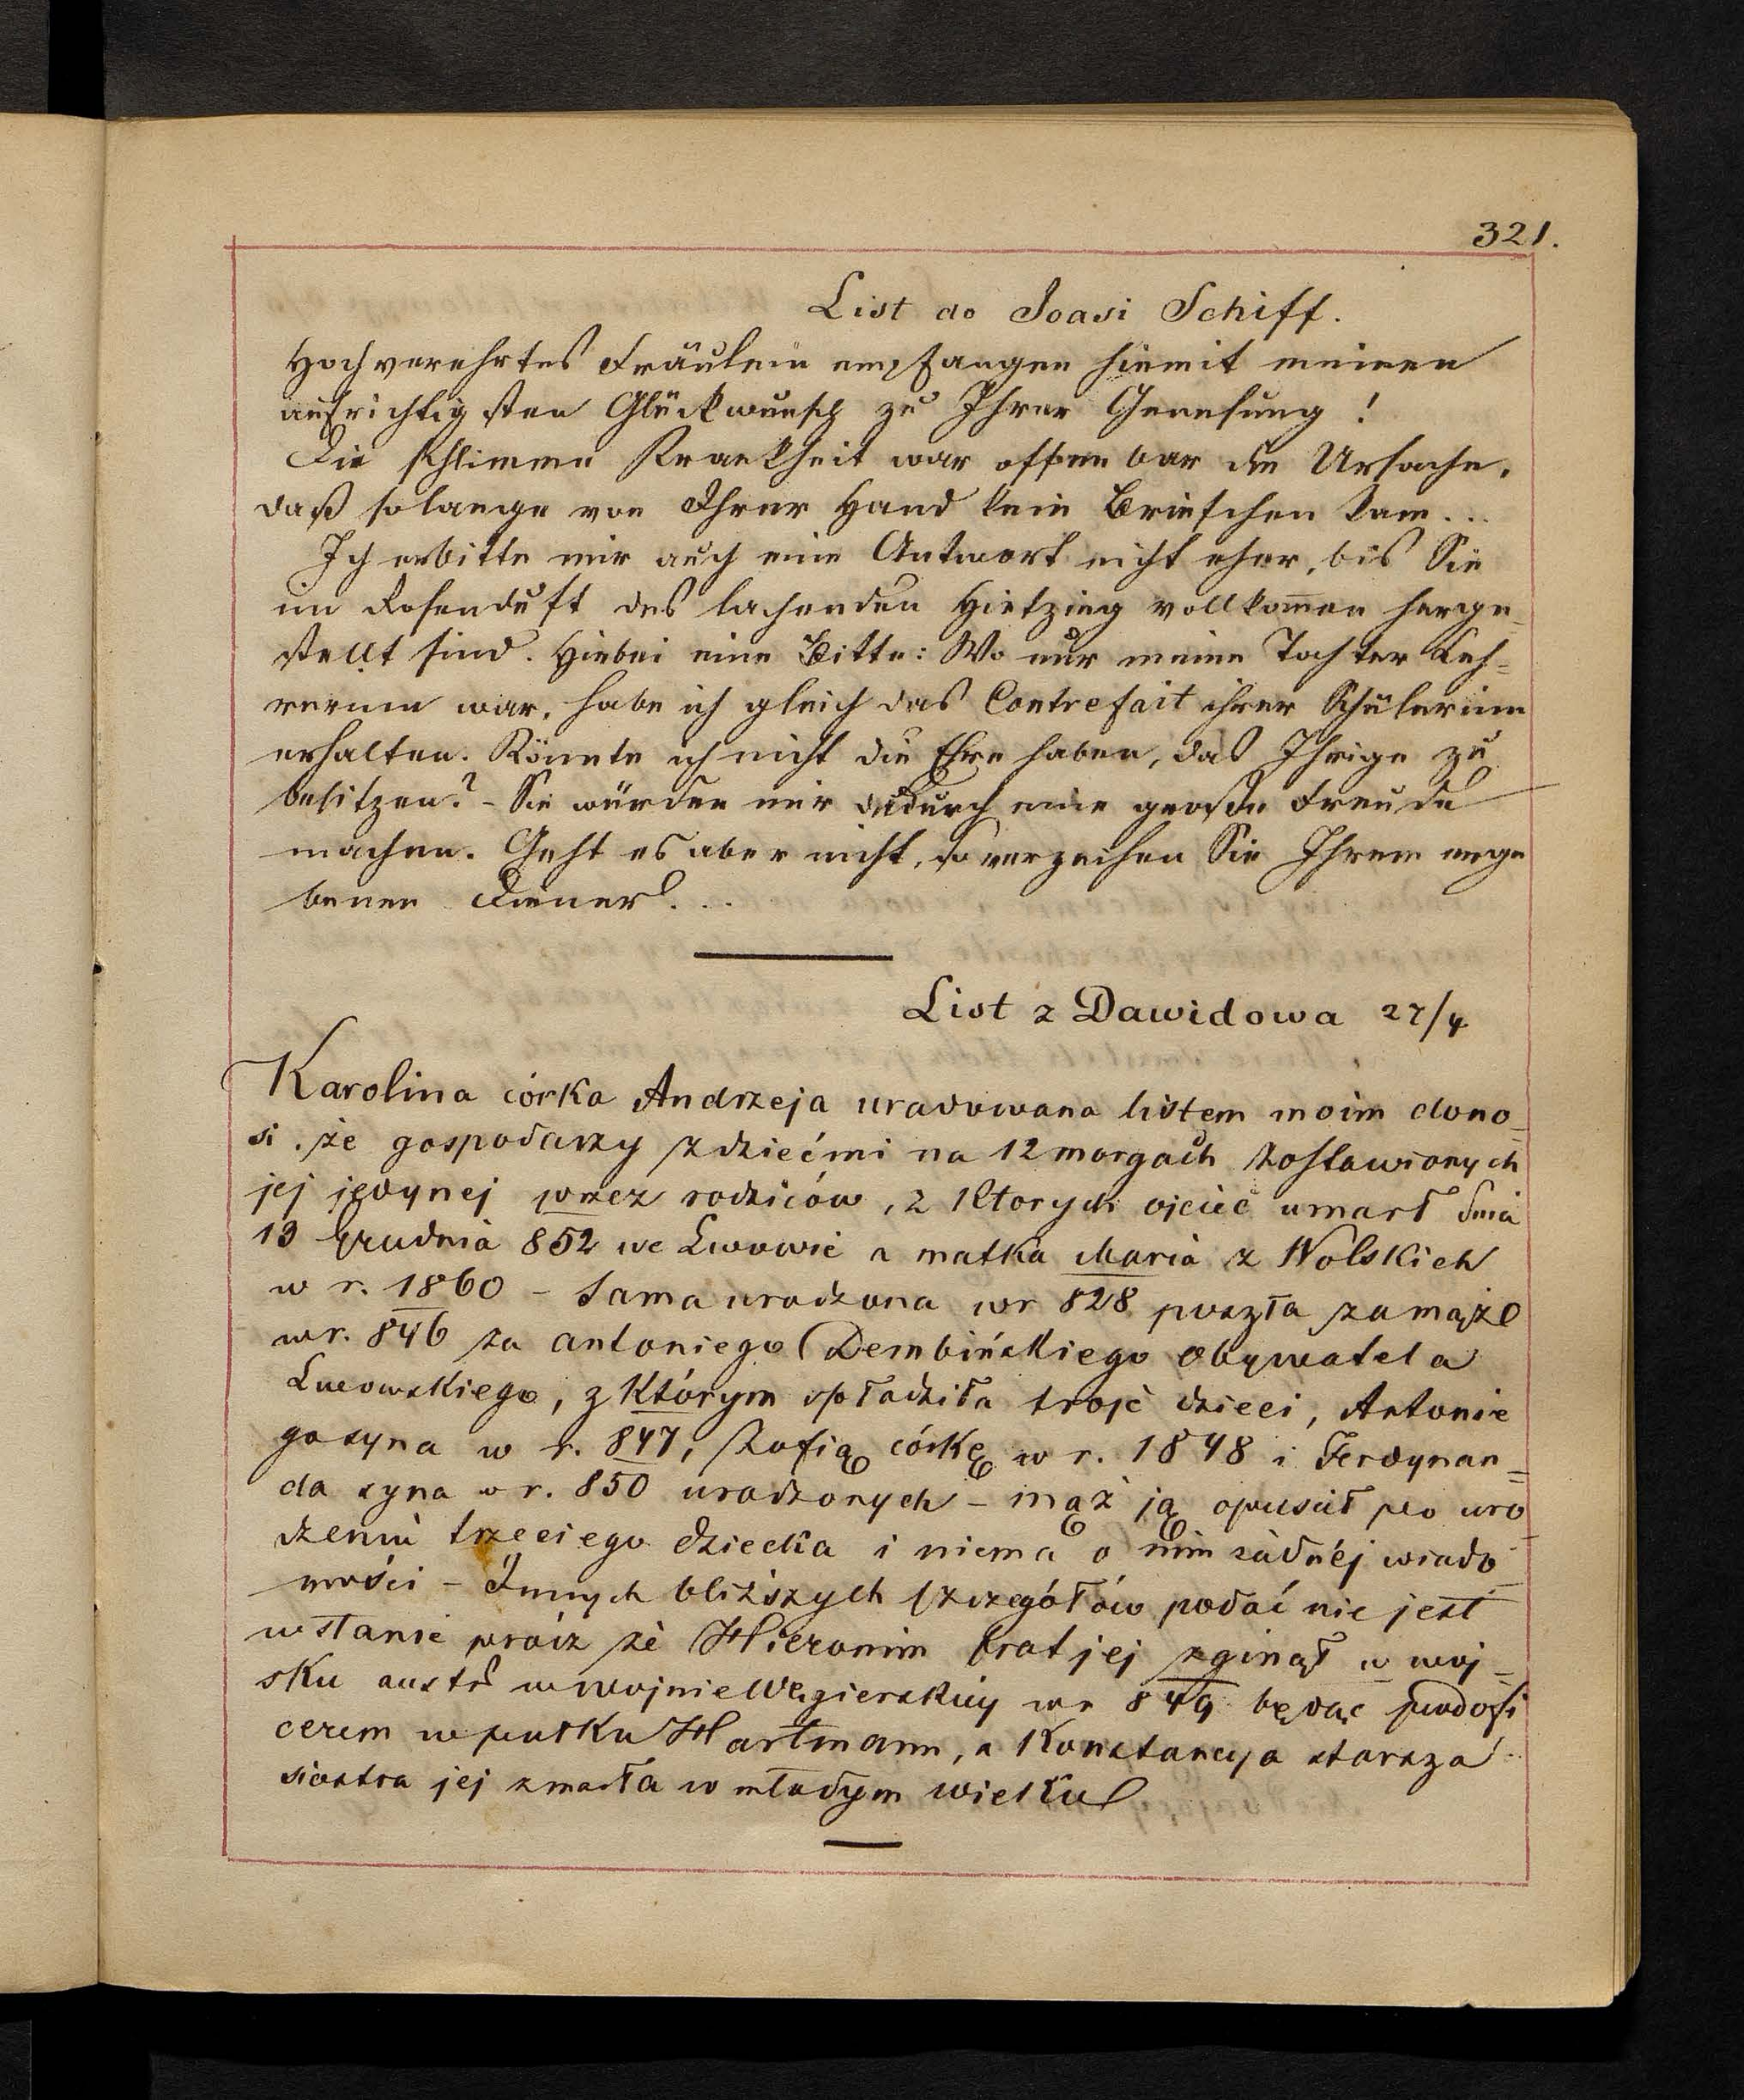 321.
List do Joasi Schiff.
Hochverehrtes Fräulein empfangen hiemit meinen
aufrichtigsten Glückwunsch zu Ihrer Genesung!
Die schlimme Krankheit war offenbar die Ursache,
daß solange von Ihrer Hand kein Briefchen kam...
Ich erbitte mir auch eine Antwort nicht eher, bis Sie
im Rosenduft des lachenden Hietzing vollkom̄en herge-
stellt sind. Hiebei eine Bitte: Wo nur meine Tochter Leh=
rerinn war, habe ich gleich das Contrefait ihrer Schülerinn
erhalten. Könnte ich nicht die Ehre haben, das Ihrige zu
besitzen? - Sie würden mir dadurch eine große Freude
machen. Geht es aber nicht, so verzeihen Sie Ihrem erge
benen Diener...
List z Dawidowa 27/4
Karolina córka Andrzeja uradowana listem moim dono=
si, że gospodarzy z dziećmi na 12 morgach zostawionych
jej jedynej przez rodziców, z ktorych ojciec umarł dnia
19 Grudnia 852 we Lwowie a matka Maria z Wolskich
w r. 1860 - Sama urodzona w r 828 poszła zamąż
w r. 846 za Antoniego Dembińskiego Obywatela
Lwowskiego, z którym spłodziła troje dzieci, Antonie
go syna w r. 847, Zofią córkę w r. 1848 i Ferdynan=
da syna w r. 850 urodzonych - mąż ją opuścił po uro
dzeniu trzeciego dziecka i niema o nim żadnéj wiado
mości - Innych bliższych szczegółów podać nie jest
w stanie prócz że Hieronim brat jej zginął w woj=
sku austr w wojnie Węgierskiej w r 849 będąc podofi
cerem w pułku Hartmann, a Konstancya starsza
siostra jej zmarła w młodym wieku